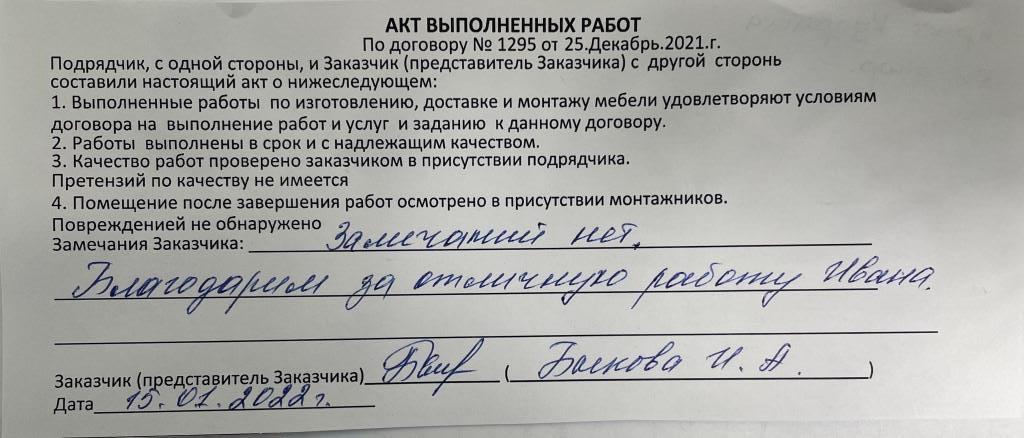 АКТ ВЫПОЛНЕННЫХ РАБОТ
По договору № 1295 от 25.Декабрь.2021.г.
Подрядчик, с одной стороны, и Заказчик (представитель Заказчика) с другой сторонь
составили настоящий акт о нижеследующем:
1. Выполненные работы по изготовлению, доставке и монтажу мебели удовлетворяют условиям
договора на выполнение работ и услуг и заданию к данному договору.
2. Работы выполнены в срок и с надлежащим качеством.
3. Качество работ проверено заказчиком в присутствии подрядчика.
Претензий по качеству не имеется
4. Помещение после завершения работ осмотрено в присутствии монтажников.
Повреждениeй не обнаружено
Замечания Заказчика: Замечаний нет.
Благодарим за отличную работу Ивана.
Заказчик (представитель Заказчика) (Быкова И. А.)
Дата 15.01.2022 г.